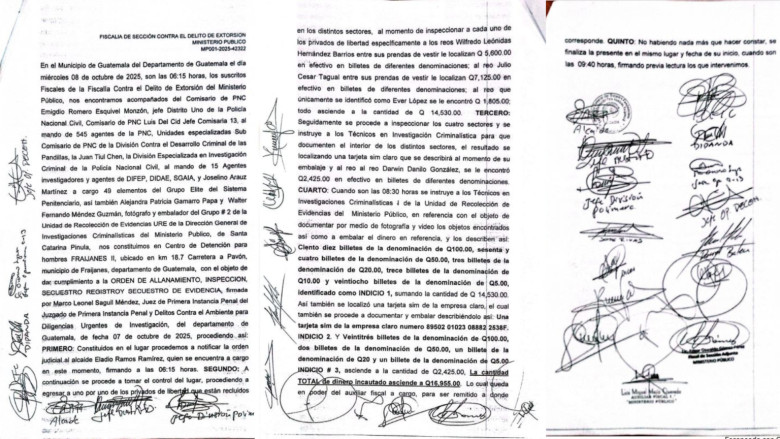 FISCALIA DE SECCIÓN CONTRA EL DELITO DE EXTORSION
MINISTERIO PUBLICO
MP001-2025-42322
En el Municipio de Guatemala del Departamento de Guatemala el día
miércoles 08 de octubre de 2025, son las 06:15 horas, los suscritos
Fiscales de la Fiscalía Contra el Delito de Extorsión del Ministerio
Público, nos encontramos acompañados del Comisario de PNC
Emigdio Romero Esquivel Monzón, jefe Distrito Uno de la Policía
Nacional Civil, Comisario de PNC Luis Del Cid Jefe Comisaria 13, al
mando de 545 agentes de la PNC, Unidades especializadas Sub
Comisario de PNC de la División Contra el Desarrollo Criminal de las
Pandillas, la Juan Tiul Chen, la División Especializada en Investigación
Criminal de la Policía Nacional Civil, al mando de 15 Agentes
investigadores y agentes de DIFEP, DIDAE, SGAIA, y Joselino Arauz
Martínez a cargo 49 elementos del Grupo Elite del Sistema
Penitenciario, así también Alejandra Patricia Gamarro Papa y Walter
Fernando Méndez Guzmán, fotógrafo y embalador del Grupo # 2 de la
Unidad de Recolección de Evidencias URE de la Dirección General de
Investigaciones Criminalísticas del Ministerio Publico, de Santa
Catarina Pinula, nos constituimos en Centro de Detención para
hombres FRAIJANES II, ubicado en km 18.7 Carretera a Pavón,
municipio de Fraijanes, departamento de Guatemala, con el objeto de
dar cumplimiento a la ORDEN DE ALLANAMIENTO, INSPECCIÓN,
SECUESTRO REGISTROY SECUESTRO DE EVIDENCIA, firmada
por Marco Leonel Sagüil Méndez, Juez de Primera Instancia Penal del
Juzgado de Primera Instancia Penal y Delitos Contra el Ambiente para
Diligencias Urgentes de Investigación, del departamento de
Guatemala, de fecha 07 de octubre de 2025, procediendo así:
PRIMERO: Constituidos en el lugar procedemos a notificar la orden
judicial al alcaide Eladio Ramos Ramírez, quien se encuentra a cargo
en este momento, firmando a las 06:15 horas. SEGUNDO: A
continuación se procede a tomar el control del lugar, procediendo a
egresar a uno por uno de los privados de libertad que están recluidos
Alcaide
Jefe DISTRITO
Jefe División
en los distintos sectores, al momento de inspeccionar a cada uno de
los privados de libertad específicamente a los reos Wilfredo Leónidas
Hernández Barrios entre sus prendas de vestir le localizan Q 5,600.00
en efectivo en billetes de diferentes denominaciones; al reo Julio
Cesar Tagual entre sus prendas de vestir le localizan Q7,125.00 en
efectivo en billetes de diferentes denominaciones; al reo que
únicamente se identificó como Ever López se le encontró Q 1,805.00;
todo asciende a la cantidad de Q 14,530.00. TERCERO:
Seguidamente se procede a inspeccionar los cuatro sectores y se
instruye a los Técnicos en Investigación Criminalística para que
documenten el interior de los distintos sectores, el resultado se
localizando una tarjeta sim claro que se describirá al momento de su
embalaje y al reo al reo Darwin Danilo González, se le encontró
Q2,425.00 en efectivo en billetes de diferentes denominaciones.
CUARTO: Cuando son las 08:30 horas se instruye a los Técnicos en
Investigaciones Criminalísticas I de la Unidad de Recolección de
Evidencias del Ministerio Público, en referencia con el objeto de
documentar por medio de fotografía y video los objetos encontrados
así como a embalar el dinero en referencia, y los describen así:
Ciento diez billetes de la denominación de Q100.00, sesenta y
cuatro billetes de la denominación de Q50.00, tres billetes de la
denominación de Q20.00, trece billetes de la denominación de
Q10.00 y veintiocho billetes de la denominación de Q5.00,
identificado como INDICIO 1, sumando la cantidad de Q 14,530.00.
Así también se localizó una tarjeta sim de la empresa claro, el cual
también se procede a documentar y embalar describiéndolo así: Una
tarjeta sim de la empresa claro numero 89502 01023 08882 2538F.
INDICIO 2. Y Veintitrés billetes de la denominación de Q100.00,
dos billetes de la denominación de Q50.00, un billetes de la
denominación de Q20 y un billetes de la denominación de Q5.00
INDICIO # 3, asciende a la cantidad de Q2,425.00, La cantidad
TOTAL de dinero incautado asciende a Q16,955.00. Lo cual queda
en poder del auxiliar fiscal a cargo, para ser remitido a donde
corresponde. QUINTO: No habiendo nada más que hacer constar, se
finaliza la presente en el mismo lugar y fecha de su inicio, cuando son
las 09:40 horas, firmando previa lectura los que intervenimos.
Alcaide
Jefe DISTRITO
Jefe División
MINISTERIO PÚBLICO